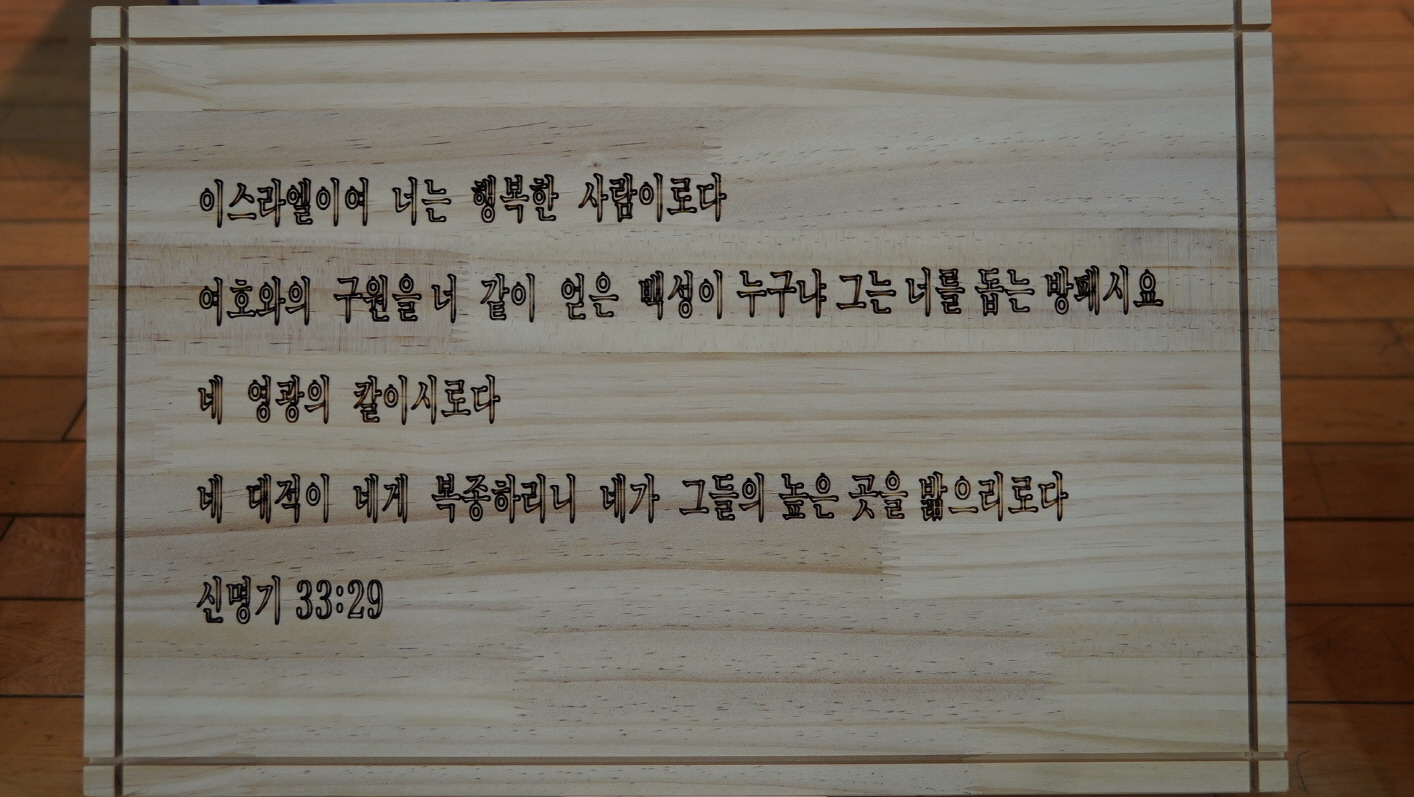 이스라엘이여 너는 행복한 사람이로다
여호와의 구원을 너 같이 얻은 백성이 누구냐 그는 너를 돕는 방패시요
네 영광의 칼이시로다
네 대적이 네게 복종하리니 네가 그들의 높은 곳을 밟으리로다
신명기 33:29